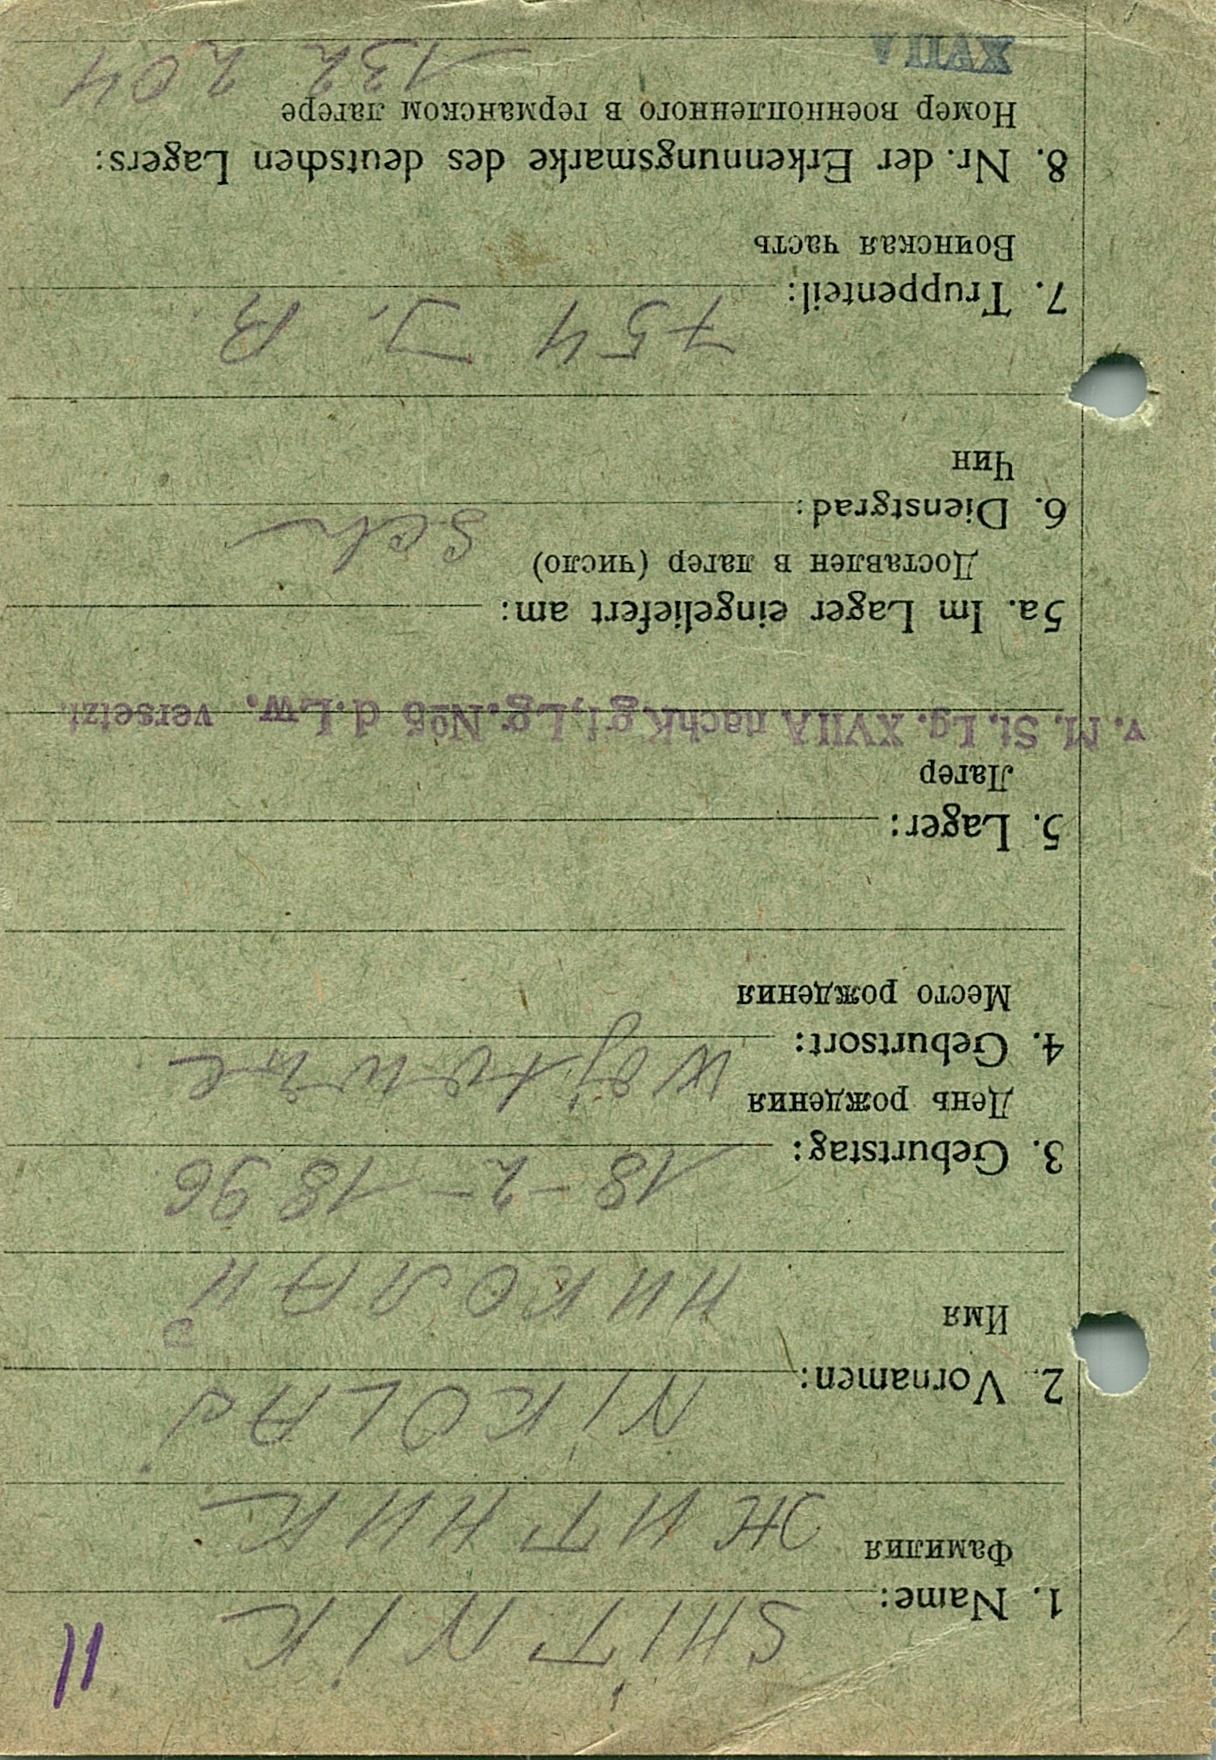 11
1. Name: SHITNIK
Фамилия ЖИТНИК
2. Vornamen: NIKOLAJ
Имя НИКОЛАЙ
3. Geburtstag: 18-2-1896
День рождения
4. Geburtsort:
Место рождения
5. Lager:
Лагер
v. M. St. Lg. XVIIA nach Kgf. Lg. No5 d. Lw. versetzt.
5a. Im Lager eingeliefert am:
Доставлен в лагер (число)
6. Dienstgrad: Sch
Чин
7. Truppenteil: 754 J. R
Воинская часть
8. Nr. der Erkennungsmarke des deutschen Lagers:
Номер военнопленного в германском лагере
XVII A 132 204